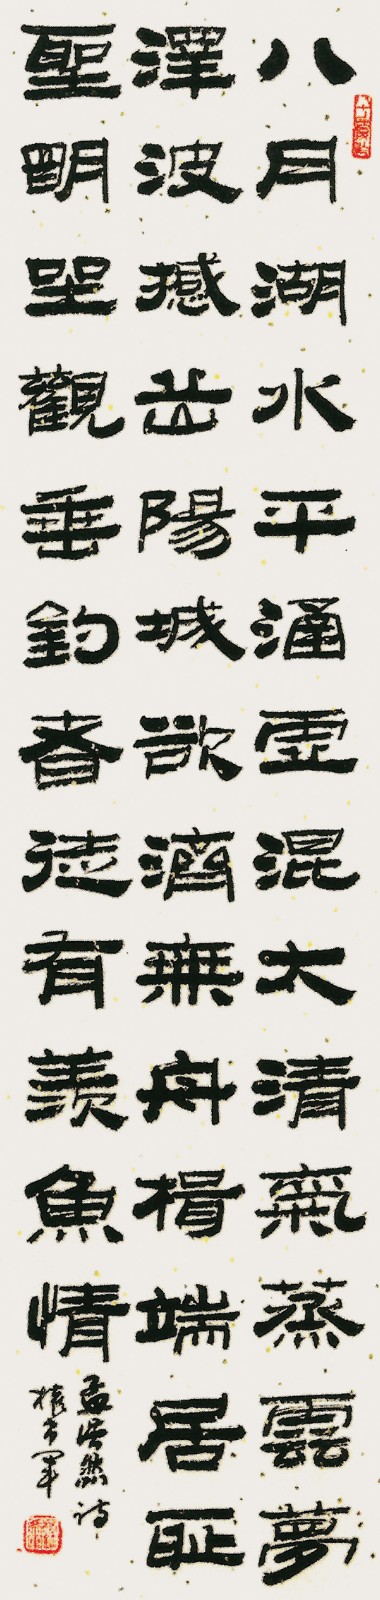 八月湖水平涵虛混太清氣蒸雲夢
澤波撼岳陽城欲濟無舟楫端居恥
聖明坐觀垂釣者徒有羨魚情
孟浩然詩
權希軍